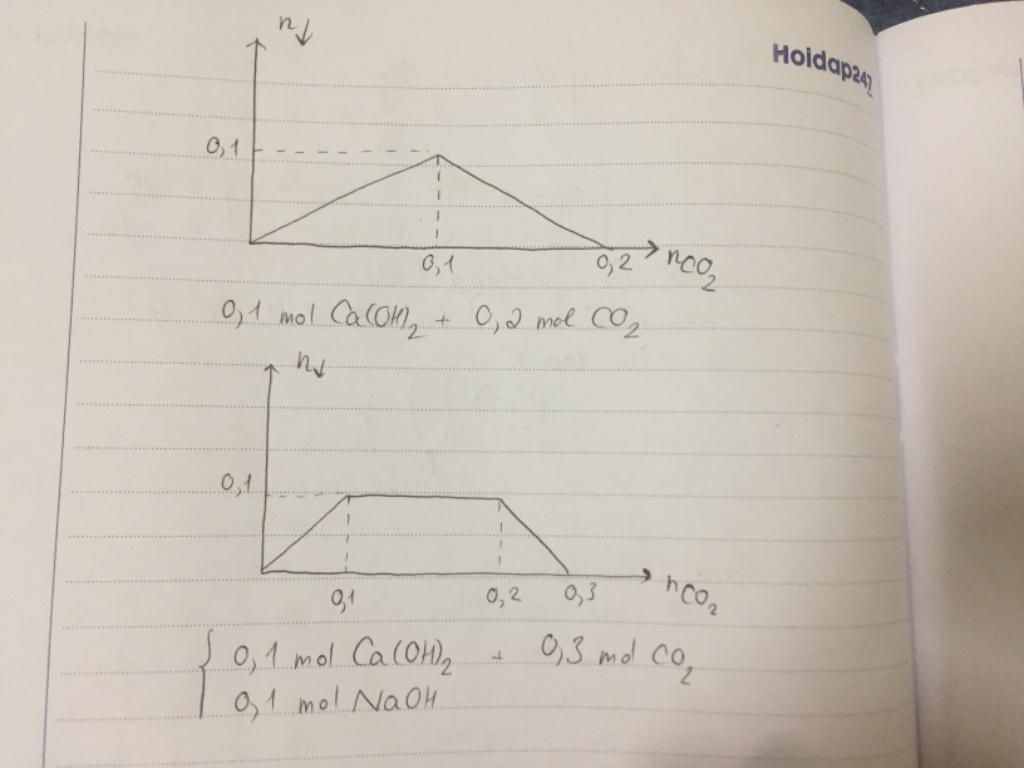 n↓
Hoidap247
0,1
0,1 0,2 nCO₂
0,1 mol Ca(OH)₂ + 0,2 mol CO₂
n↓
0,1
0,1 0,2 0,3 nCO₂
0,1 mol Ca(OH)₂ + 0,3 mol CO₂
0,1 mol NaOH